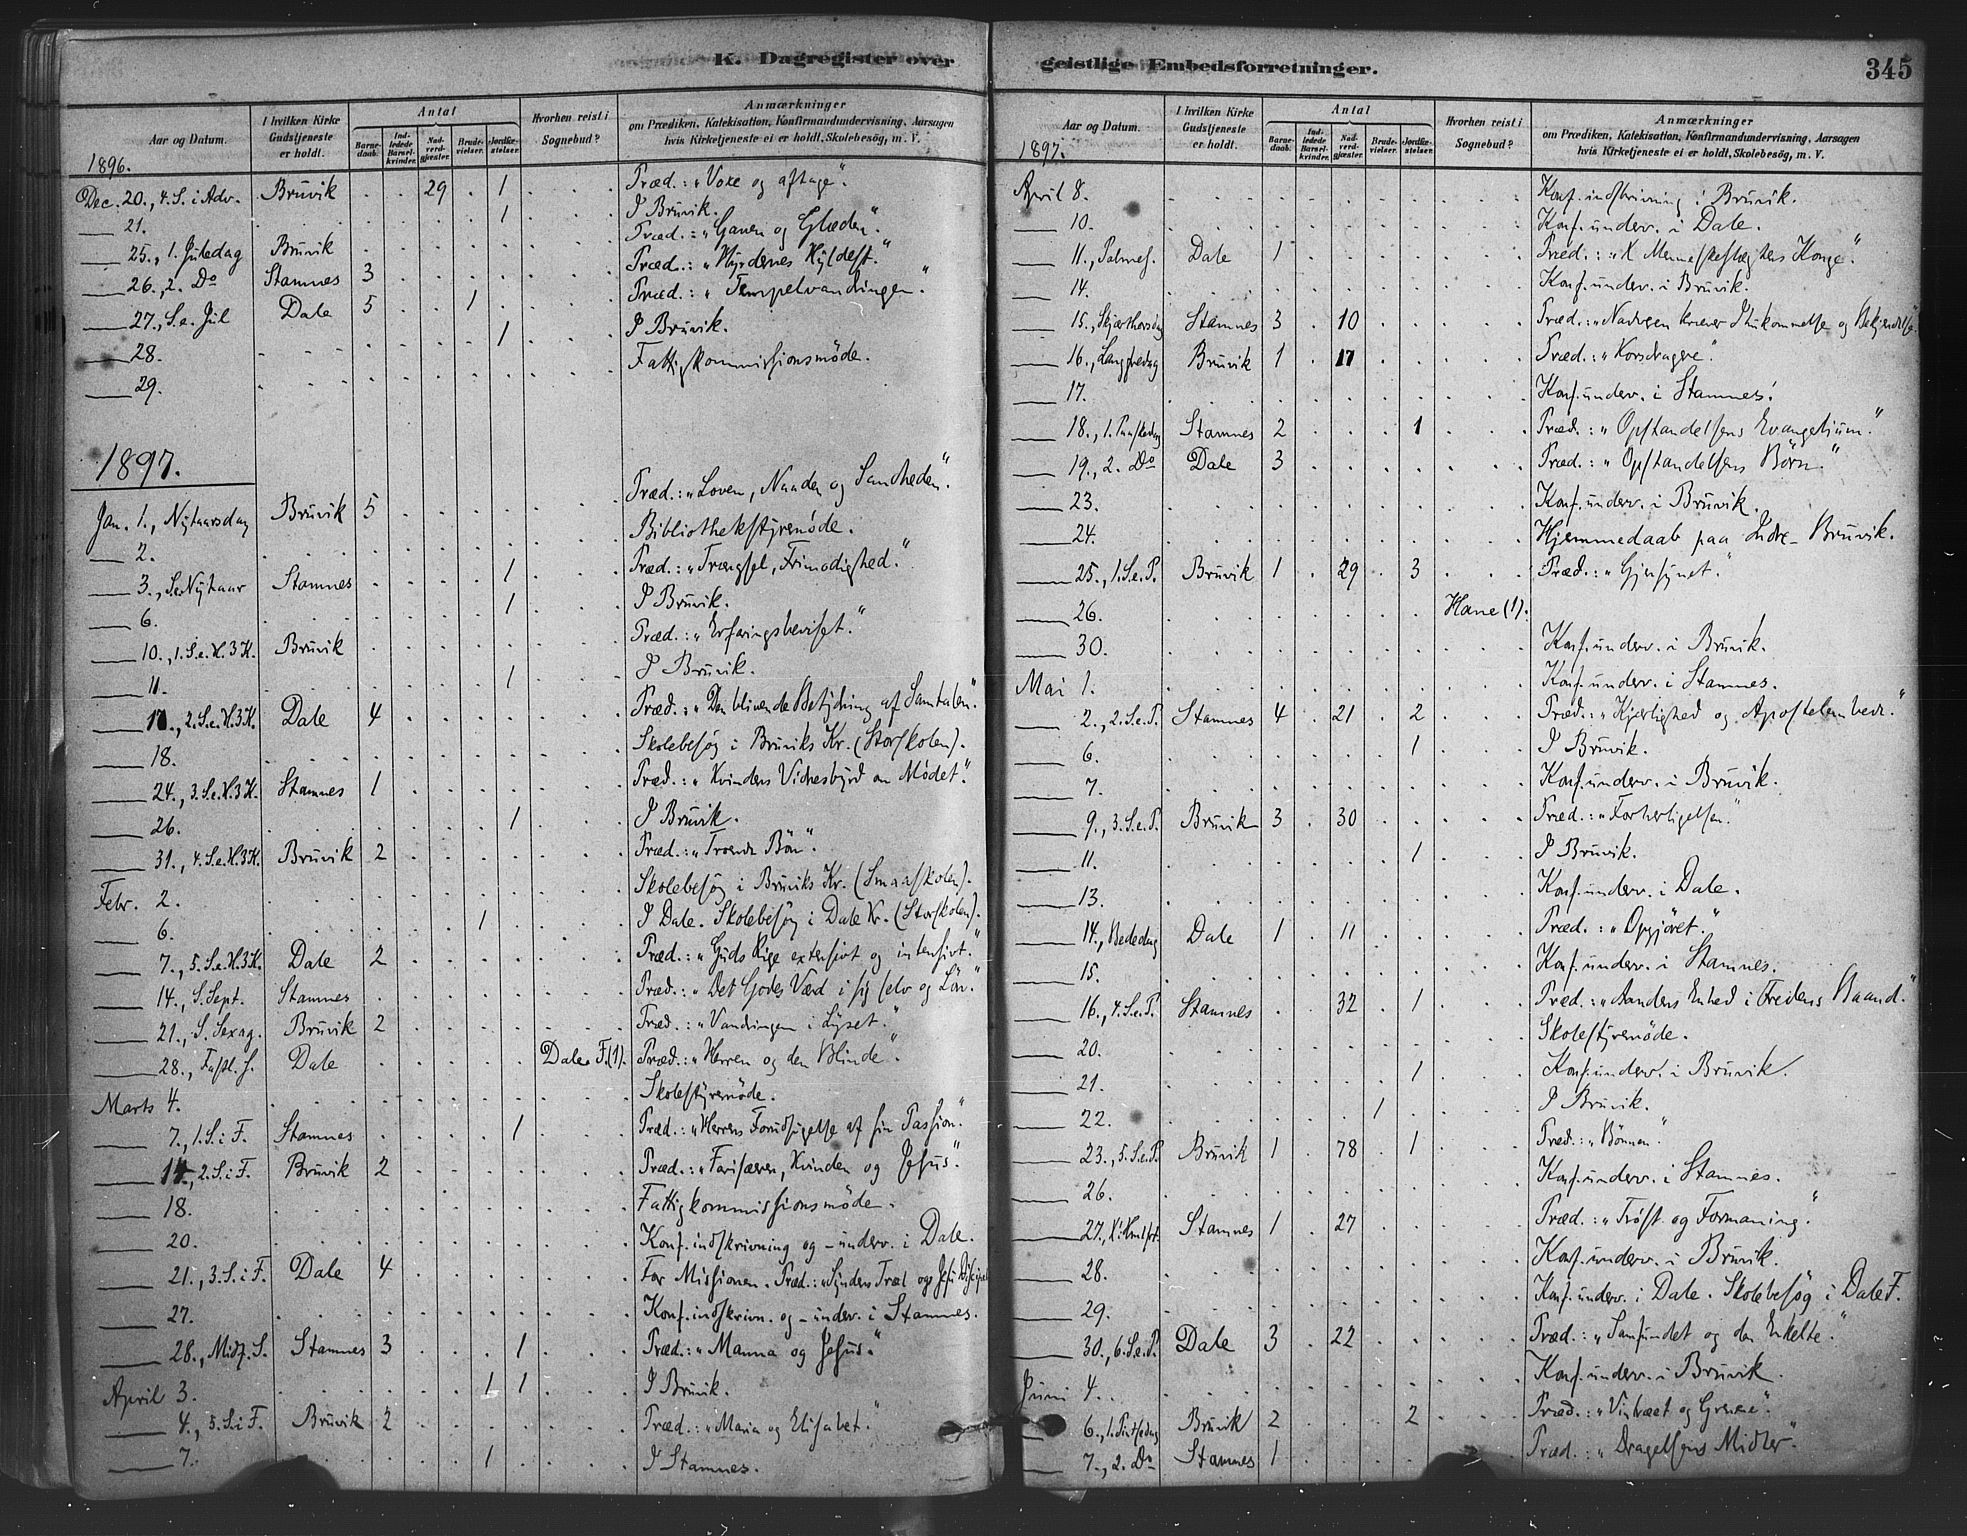 K. Dagregister over
Aar og Datum.
I hvilken Kirke Gudstjeneste er holdt.
Antal
Barnedaab. Indledede Barselkvinder. Nadverdgjæster. Brudevielser. Jordfæstelser.
Hvorhen reist i Sognebud?
Anmærkninger
om Prædiken, Katekisation, Konfirmandundervisning, Aarsagen hvis Kirketjeneste ei er holdt, Skolebesøg, m. V.
1896.
Dec. 20., 4. S. i Adv. Bruvik . . 29 . 1 Præd.: "Voxe og aftage".
21. 1 I Bruvik.
25., 1. Juledag Bruvik Præd.: "Gaven og Glæden."
26., 2. Do Stamnes 3 Præd.: "Hyrdernes Hyldest."
27., S. e. Jul Dale 5 . . 1 Præd.: "Tempelvandringen."
28. 1 I Bruvik.
29. Fattigkommissionsmöde.
1897.
Jan. 1., Nytaarsdag Bruvik 5 Præd.: "Loven, Naaden og Sandheden."
2. Bibliothekstyremöde.
3., S. e. Nytaar Stamnes 1 Præd.: "Trængsel, Frimodighed."
6. 1 I Bruvik.
10., 1. S. e. H. 3 K. Bruvik Præd.: "Erfaringsbeviset."
11. 1 I Bruvik.
17., 2. S. e. H. 3 K. Dale 4 Præd.: "Den blivende Betydning af Samtalen."
18. Skolebesög i Bruviks Kr. (Storskolen).
24., 3. S. e. H. 3 K. Stamnes 1 Præd.: "Kvindens Vidnesbyrd om Mödet."
26. 1 I Bruvik.
31., 4. S. e. H. 3 K. Bruvik 2 Præd.: "Troende Bön".
Febr. 2. Skolebesög i Bruviks Kr. (Smaaskolen).
6. 1 I Dale. Skolebesög i Dale Kr. (Storskolen).
7., 5. S. e. H. 3 K. Dale 2 Præd.: "Guds Rige extensivt og intensivt."
14., S. Sept. Stamnes Præd.: "Det Godes Værd i sig selv og Lön."
21., S. Sexag. Bruvik 2 Præd.: "Vandringen i Lyset."
28., Fastl. S. Dale Dale F. (1). Præd.: "Herren og den Blinde".
Marts 4. Skolestyremöde.
7., 1. S. i F. Stamnes 1 Præd.: "Herrens Forudsigelse af sin Passion."
14., 2. S. i F. Bruvik 2 Præd.: "Farisæeren, Kvinden og Jesus."
18. Fattigkommissionsmöde.
20. Konf. indskrivning og -underv. i Dale.
21., 3. S. i F. Dale 4 For Missionen. Præd.: "Syndens Træl og Jesu Discipel
27. Konf. indskrivn. og -underv. i Stamnes.
28., Midf. S. Stamnes 3 1 Præd.: "Manna og Jesus."
April 3. 1 1 I Bruvik.
4., 5. S. i F. Bruvik 2 Præd.: "Maria og Elisabet."
7. 1 I Stamnes.
geistlige Embedsforretninger.
345
Aar og Datum.
I hvilken Kirke Gudstjeneste er holdt.
Antal
Barnedaab. Indledede Barselkvinder. Nadverdgjæster. Brudevielser. Jordfæstelser.
Hvorhen reist i Sognebud?
Anmærkninger
om Prædiken, Katekisation, Konfirmandundervisning, Aarsagen hvis Kirketjeneste ei er holdt, Skolebesøg, m. V.
1897.
April 8. Konf. indskrivning i Bruvik.
10. Konf. underv. i Dale.
11., Palmes. Dale 1 Præd.: " Menneskeslægtens Konge".
14. Konf. underv. i Bruvik.
15., Skjærthorsdag Stamnes 3 . 10 Præd.: "Nadveren kræver Ihukommelse og Bekjendelse."
16., Langfredag Bruvik 1 . 17 Præd.: "Korsdragere".
17. Konf. underv. i Stamnes.
18., 1. Paaskedag Stamnes 2 1 Præd.: "Opstandelsens Evangelium."
19., 2. Do Dale 3 Præd.: "Opstandelsens Börn."
23. Konf. underv. i Bruvik.
24. Hjemmedaab paa Indre-Bruvik.
25., 1. S. e. P. Bruvik 1 . 29 . 3 Præd.: "Gjensynet."
26. Hane (1).
30. Konf. underv. i Bruvik.
Mai 1. Konf. underv. i Stamnes.
2., 2. S. e. P. Stamnes 4 . 21 . 2 Præd.: "Kjærlighed og Apostelembede."
6. 1 I Bruvik.
7. Konf. underv. i Bruvik.
9., 3. S. e. P. Bruvik 3 . 30 Præd.: "Forherligelsen."
11. 1 I Bruvik.
13. Konf. underv. i Dale.
14., Bededag Dale 1 . 11 Præd.: "Opgjöret."
15. Konf. underv. i Stamnes.
16., 4. S. e. P. Stamnes . . 32 . 1 Præd.: "Aandens Enhed i Fredens Baand."
20. Skolestyremöde.
21. 1 Konf. underv. i Bruvik.
22. 1 I Bruvik.
23., 5. S. e. P. Bruvik 1 . 78 . 1 Præd.: "Bönnen."
26. Konf. underv. i Stamnes.
27., Kr. Hmlfrt. Stamnes 1 . 27 Præd.: "Tröst og Formaning."
28. Konf. underv. i Bruvik.
29. Konf. underv. i Dale. Skolebesög i Dale F.
30., 6. S. e. P. Dale 3 . 22 Præd.: "Samfundet og den Enkelte."
Juni 4. Konf. underv. i Bruvik.
6., 1. Pintsedag Bruvik 2 2 Præd.: "Vintræet og Grenene".
7., 2. Do Stamnes 1 Præd.: "Dragelsens Midler."